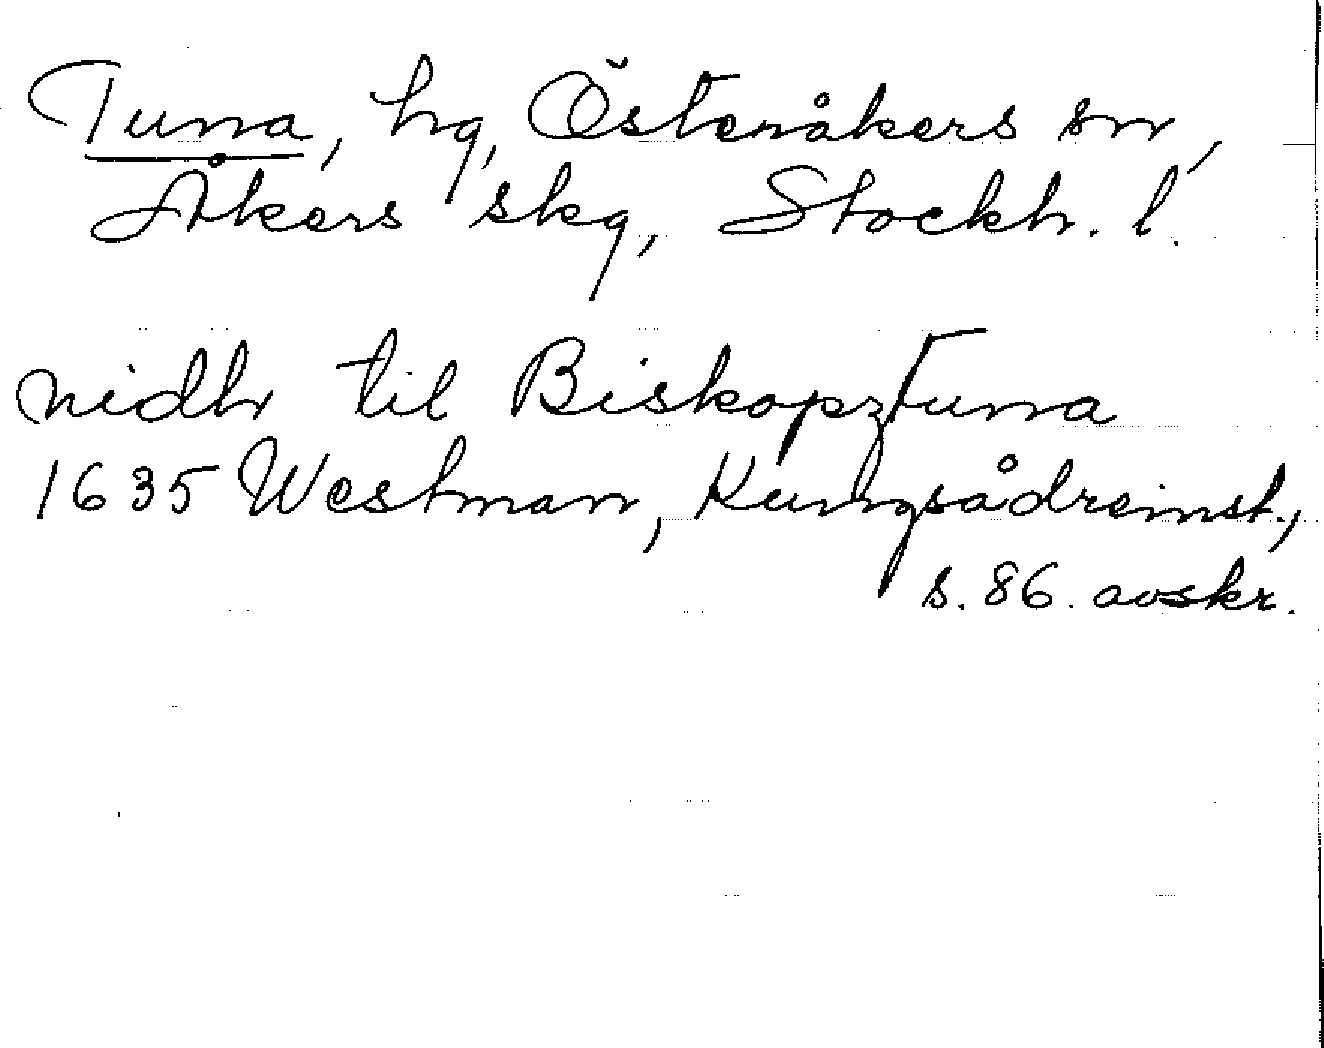 Tuna, hg, Österåkers sn,
Åkers skg, Stockh. l.
nidh til Biskopztuna
1635 Westman, Kungsådreinst.,
s. 86. avskr.